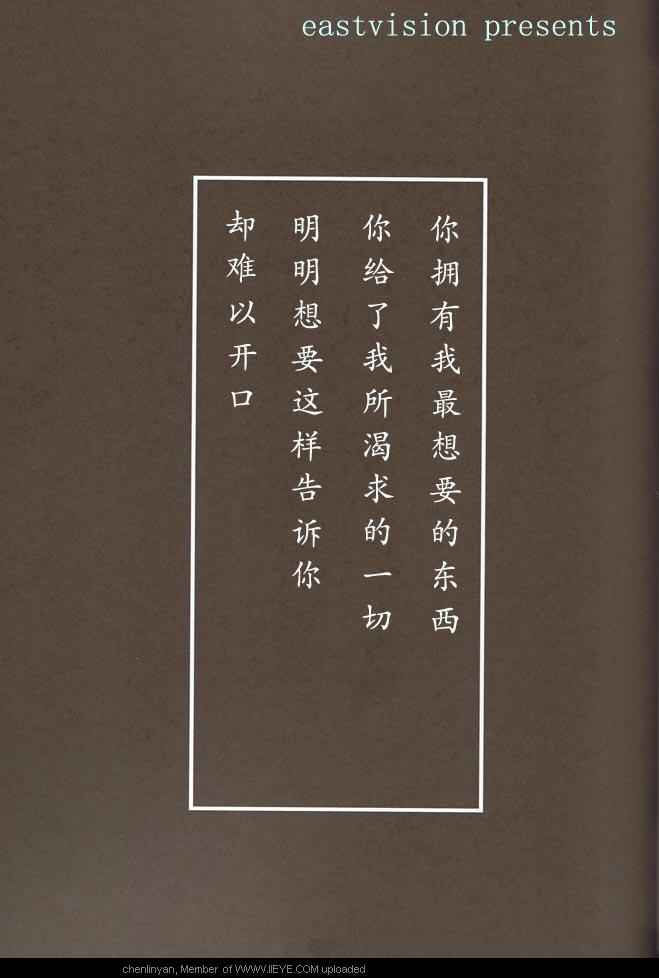 eastvision presents
你拥有我最想要的东西
你给了我所渴求的一切
明明想要这样告诉你
却难以开口
chenlinyan, Member of WWW.IIEYE.COM uploaded